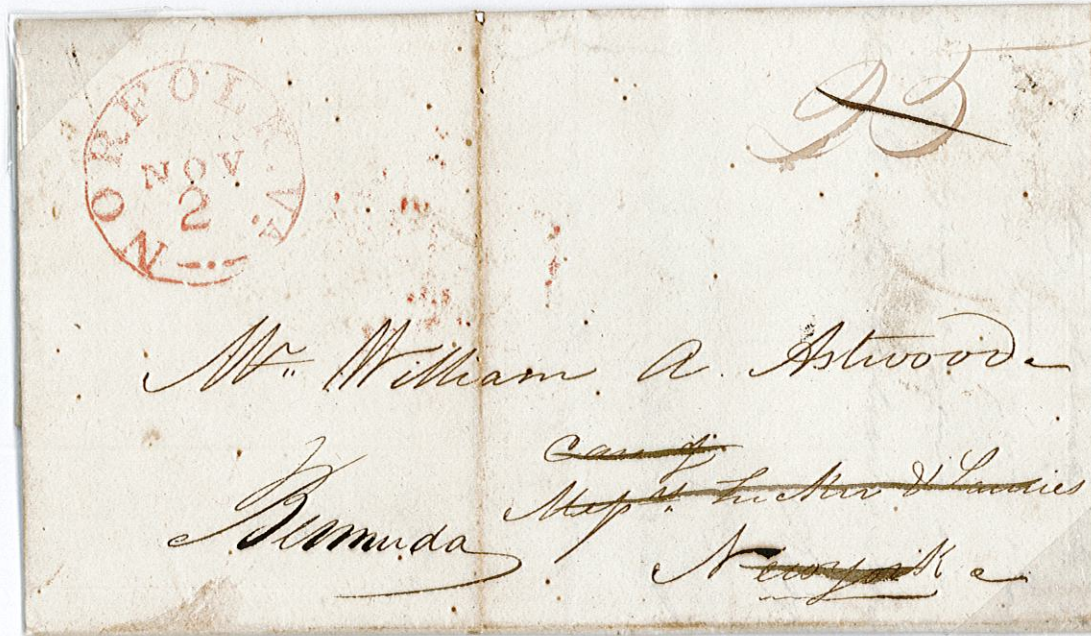 NORFOLK. Va.
NOV
2
25
Mr. William A. Astwood
care of
Messrs. Tucker & Lauries
Bermuda
New york